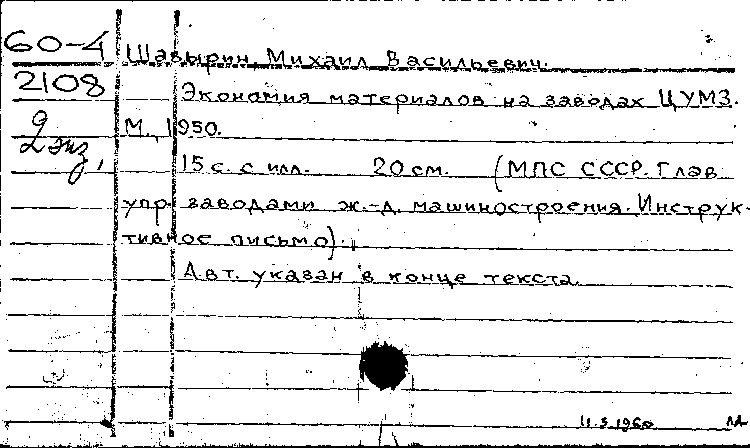 60-4 Шавырин, Михаил Васильевич.
2108 Экономия материалов на заводах ЦУМЗ.
2 экз. М., 1950.
15 с. с илл. 20 см. (МПС СССР. Глав.
упр. заводами ж.-д. машиностроения. Инструк-
тивное письмо).
Авт. указан в конце текста.
11.3.1960 ЛА